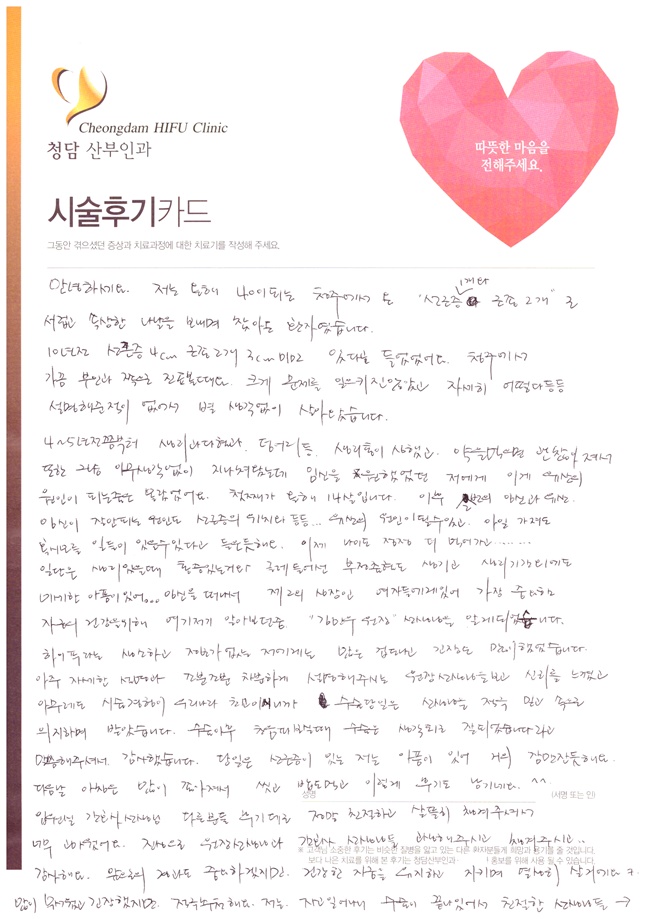 Cheongdam HIFU Clinic
청담 산부인과
따뜻한 마음을
전해주세요.
시술후기카드
그동안 겪으셨던 증상과 치료과정에 대한 치료기를 작성해 주세요.
안녕하세요. 저는 올해 40이되는 청주에서 온 "선근증 1개와 근종 2개"로
서럽고 속상한 나날을 보내며 찾아온 환자였습니다.
10년전 선근증 4cm 근종 2개 3cm미만 있다는 들었었어요. 청주에서
가끔 부인과 쪽으로 진료봤는데요. 크게 문제를 일으키진않았고 자세히 어떻다등등
설명해준적이 없어서 별 생각없이 살아왔습니다.
4~5년전쯤부터 생리과다현과, 덩어리등, 생리통이 심했고, 약을먹으면 괜찮아져서
또한 그냥 아무생각없이 지나쳐왔는데 임신을 원했었던 저에게 이게 유산의
원인이 되는줄은 몰랐었어요. 첫째가 올해 14살입니다. 이후 임신과 유산.
임신이 잘안되는 원인도 선근증의 위치와 등등... 유산의 원인이 될수있고,
있을수있다고 들은듯해요. 이제 나이도 점점 더 먹어가고........
일단은 생리있을때 통증있는거와 부정출혈도 생기고 생리기간외에도
미세한 아픔이있어... 임신을 떠나서 제2의 심장인 여자들에게있어 가장 중요한
자궁의 건강을위해 여기저기 알아보던중 원장 선생님을 알게되었습니다.
하이푸라는 생소하고 정보가없는 저에게는 많은 겁도나고 긴장도 많이했었습니다.
아주 자세한 설명과 조분조분 차분하게 설명해주시는 원장선생님을보고 신뢰를 느꼈고
아무래도 시술경험이 우리나라 최고이니까 수술당일은 선생님을 정말 믿고 속으로
의지하며 받았습니다. 수술이후 처음뵈었을때 수술은 생각외로 잘되었습니다라고
말씀해주셔서 감사했습니다. 당일은 선근증이 있는 저는 아픔이 있어 거의 잠만잤듯해요.
다음날 아침은 많이 괜찮아져서 씻고 밥도먹고 이렇게 후기도 남기네요. ^^
성명
(서명 또는 인)
입원실 간호사선생님 다른분들 후기대로 정말 친절하고 살뜰히 챙겨주셔서
너무 고마웠어요. 진심으로 원장선생님과 간호사 선생님들 감사해주시고 챙겨주시고..
※ 고객님 소중한 후기는 비슷한 질병을 앓고 있는 다른 환자분들께 희망과 용기를 줄 것입니다.
보다 나은 치료를 위해 본 후기는 청담산부인과 홍보를 위해 사용 될 수 있습니다.
감사해요. 앞으로의 경과도 중요하겠지만. 건강한 자궁을 유지하고 지키며 열심히 살게요
많이 무섭고 긴장했지만. 저는. 자고일어나니 수술이 끝나있어서 친절한 선생님들 →